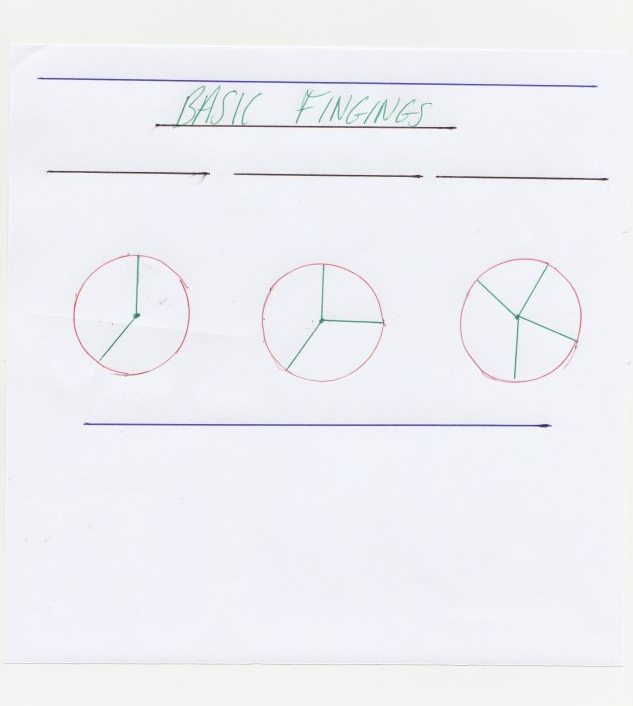 BASIC FINGINGS